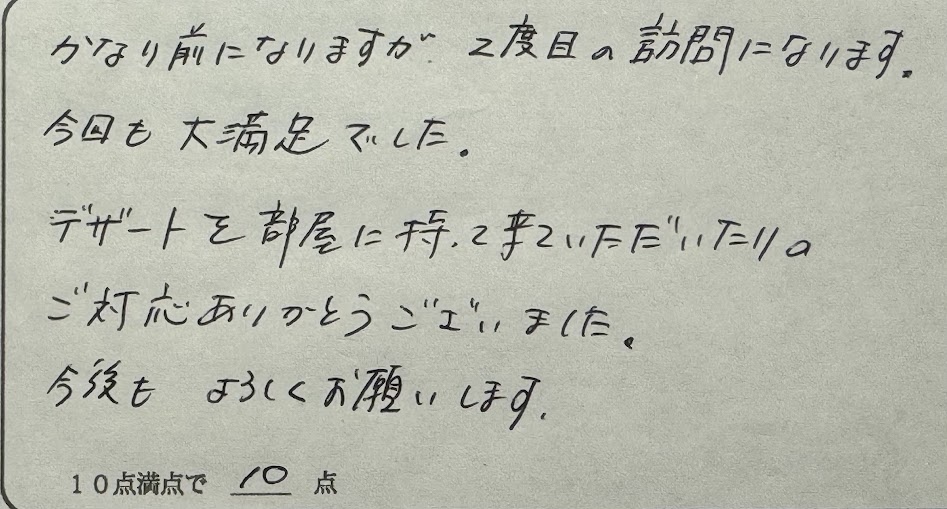 かなり前になりますが 2度目の訪問になります。
今回も 大満足でした。
デザートを部屋に持って来ていただいたりの
ご対応ありがとうございました。
今後も よろしくお願いします。
10点満点で 10 点